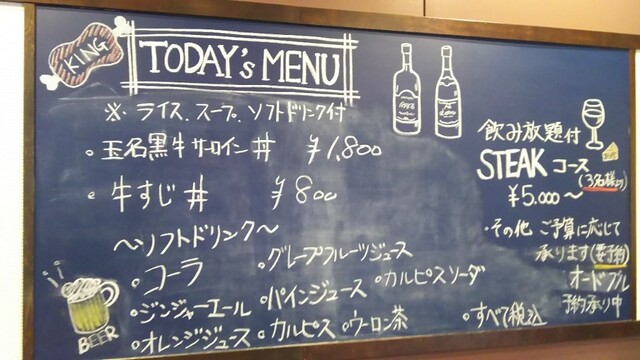 KING
TODAY's MENU
※ ライス、スープ、ソフトドリンク付
・玉名黒牛サーロイン丼 ¥1,800
・牛すじ丼 ¥800
〜ソフトドリンク〜
・コーラ ・グレープフルーツジュース
・ジンジャーエール ・パインジュース ・カルピスソーダ
・オレンジジュース ・カルピス ・ウーロン茶
BEER
飲み放題付
STEAK コース
(3名様より)
¥5.000〜
・その他 ご予算に応じて
承ります(要予約)
オードブル
予約承り中
・すべて税込